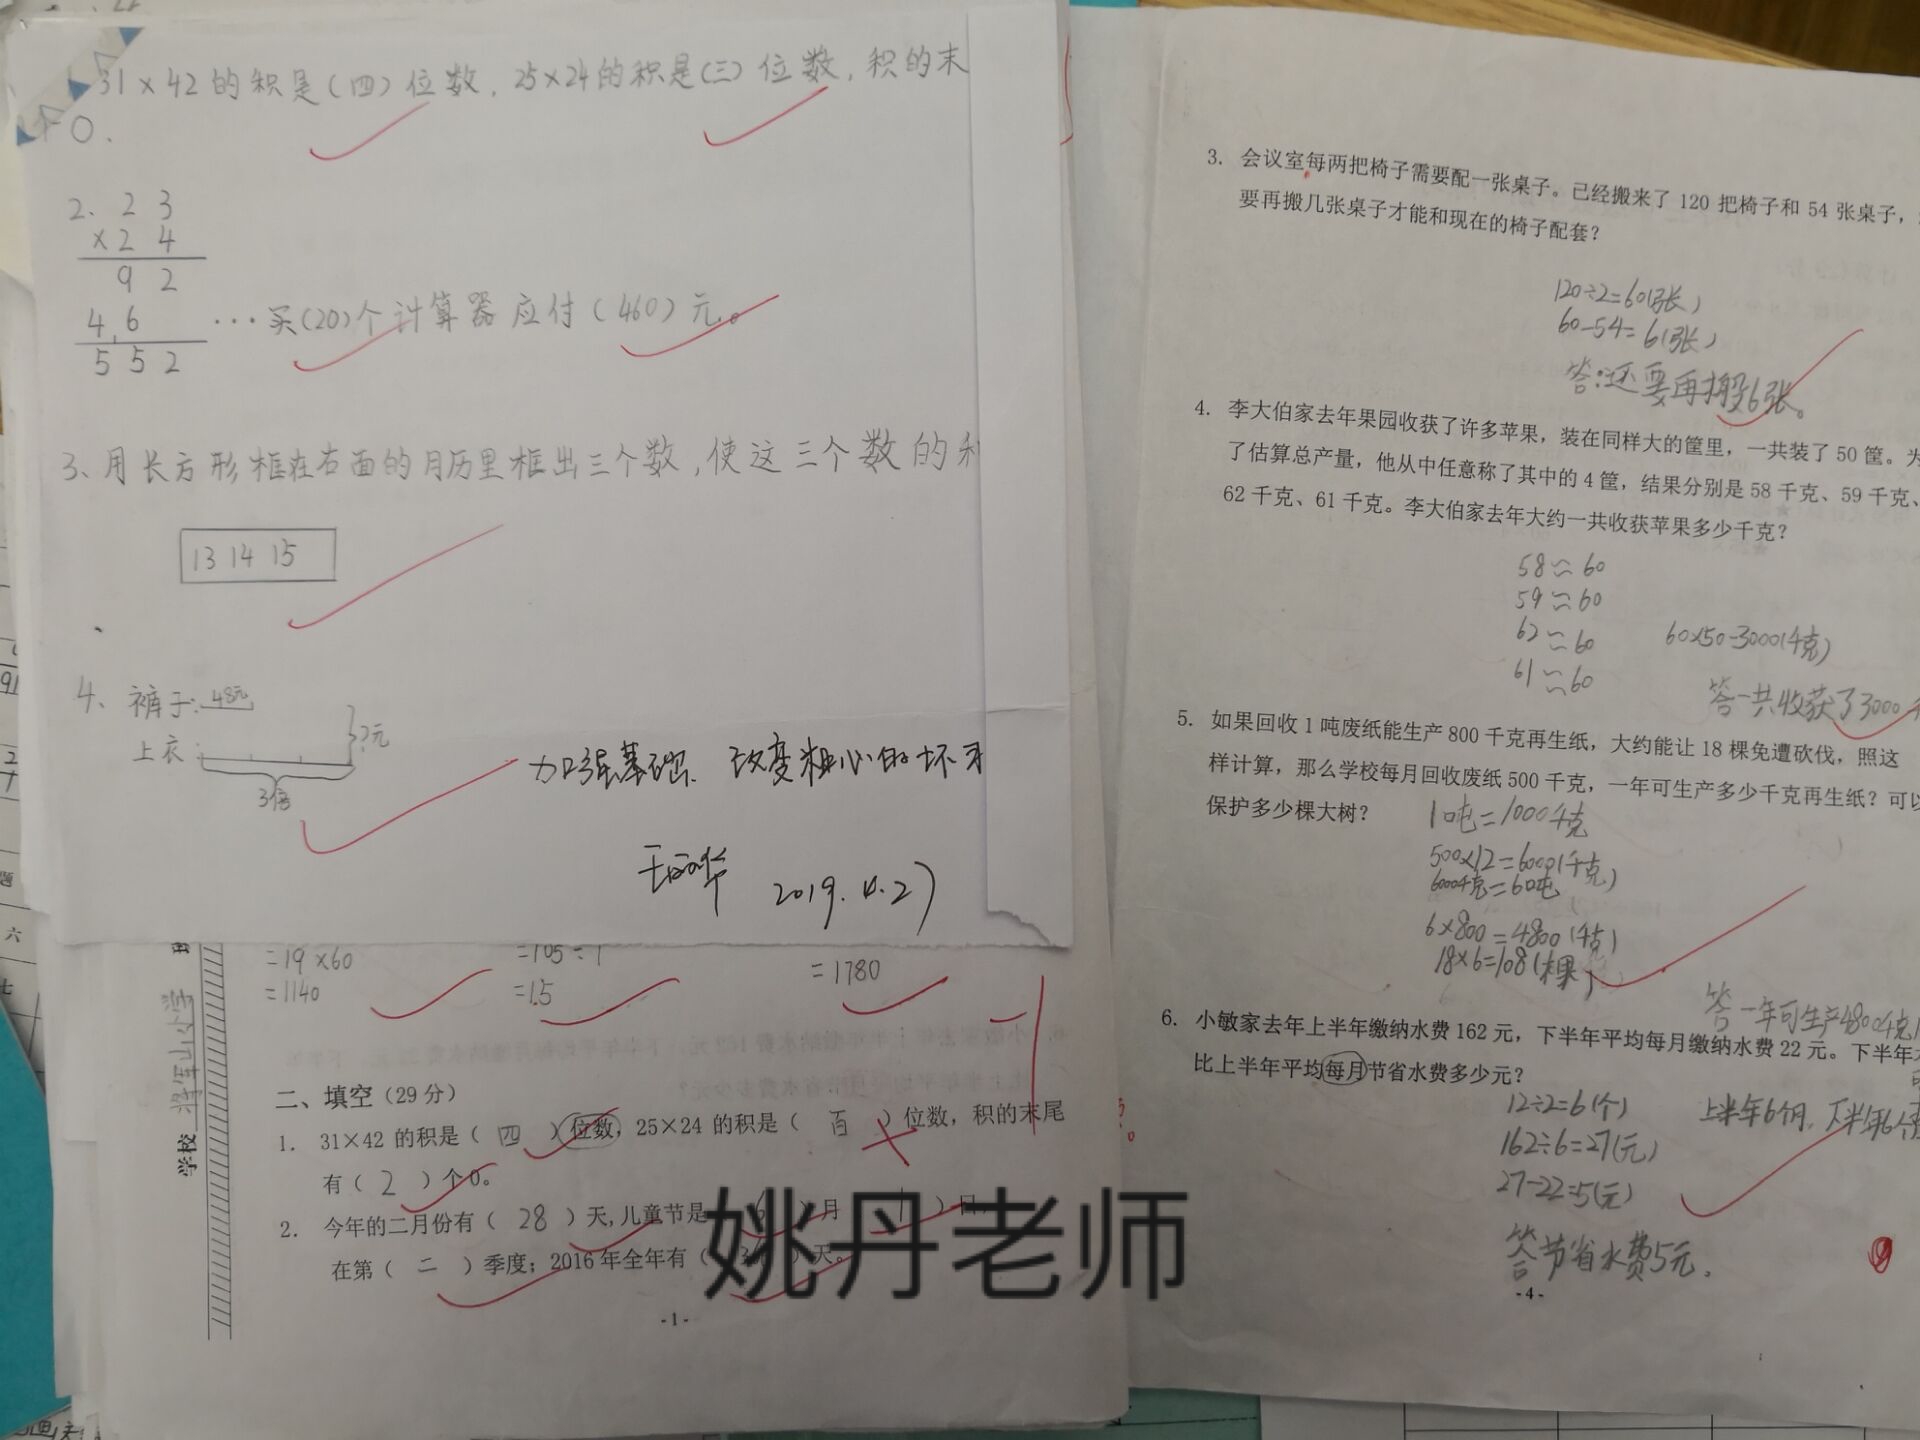 31×42的积是(四)位数,25×24的积是(三)位数,积的末
个0.
2. 23
×24
92
46
552
…买(20)个计算器应付(460)元。
3、用长方形框在右面的月历里框出三个数,使这三个数的
13 14 15
4、裤子:48元
上衣
?元
3倍
加强基础、改变粗心的坏
2019.4.27
=19×60
=1140
=1.5
=1780
-1
学校 将军山小学
二、填空(29分)
1. 31×42 的积是( 四 )位数,25×24 的积是( 百 )位数,积的末尾
有( 2 )个0。
2. 今年的二月份有( 28 )天,儿童节是 月 日,
在第( 二 )季度;2016年全年有( )天。
- 1 -
3. 会议室每两把椅子需要配一张桌子。已经搬来了 120 把椅子和 54 张桌子,
要再搬几张桌子才能和现在的椅子配套?
120÷2=60(张)
60-54=6(张)
答:还要再搬6张。
4. 李大伯家去年果园收获了许多苹果,装在同样大的筐里,一共装了 50 筐。为
了估算总产量,他从中任意称了其中的 4 筐,结果分别是 58 千克、59 千克、
62 千克、61 千克。李大伯家去年大约一共收获苹果多少千克?
58≈60
59≈60
62≈60
61≈60
60×50=3000(千克)
答一共收获了3000
5. 如果回收 1 吨废纸能生产 800 千克再生纸,大约能让 18 棵免遭砍伐,照这
样计算,那么学校每月回收废纸 500 千克,一年可生产多少千克再生纸?可以
保护多少棵大树?
1吨=1000千克
500×12=6000(千克)
6000千克=60吨
6×800=4800(千克)
18×6=108(棵)
答一年可生产4800千克
6. 小敏家去年上半年缴纳水费 162 元,下半年平均每月缴纳水费 22 元。下半年
比上半年平均每月节省水费多少元?
12÷2=6(个)
上半年6个月,下半年6个
162÷6=27(元)
27-22=5(元)
答节省水费5元.
- 4 -
姚丹老师